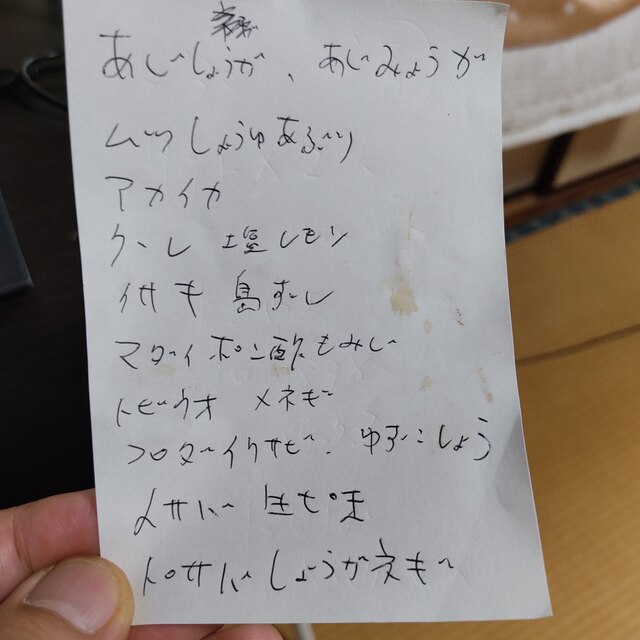 あじしょうが、あじみょうが
ムツしょうゆあぶり
アカイカ
クーレ 塩レモン
イサキ 島ずし
マダイ ポン酢もみじ
トビウオ メネギ
クロダイワサビ、ゆずこしょう
メサバ 生七味
トロサバ しょうがネギ